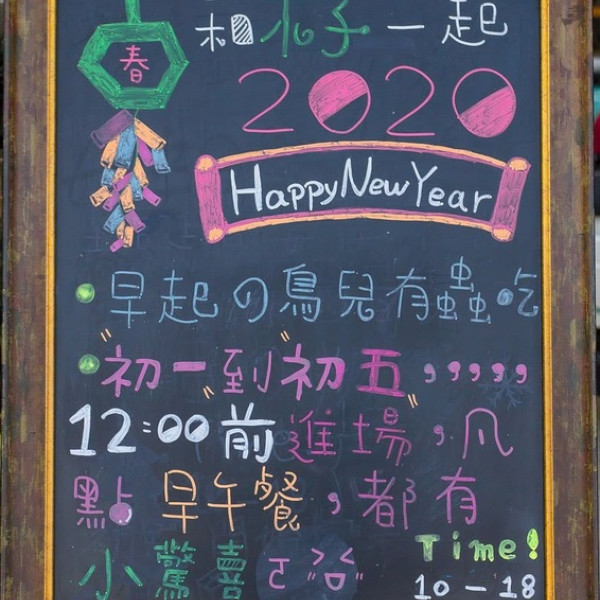 春
和木子一起
2020
Happy New Year
早起の鳥兒有蟲吃
"初一"到"初五",,,,,
12:00前進場,凡
點早午餐,都有
小驚喜
Time!
10-18